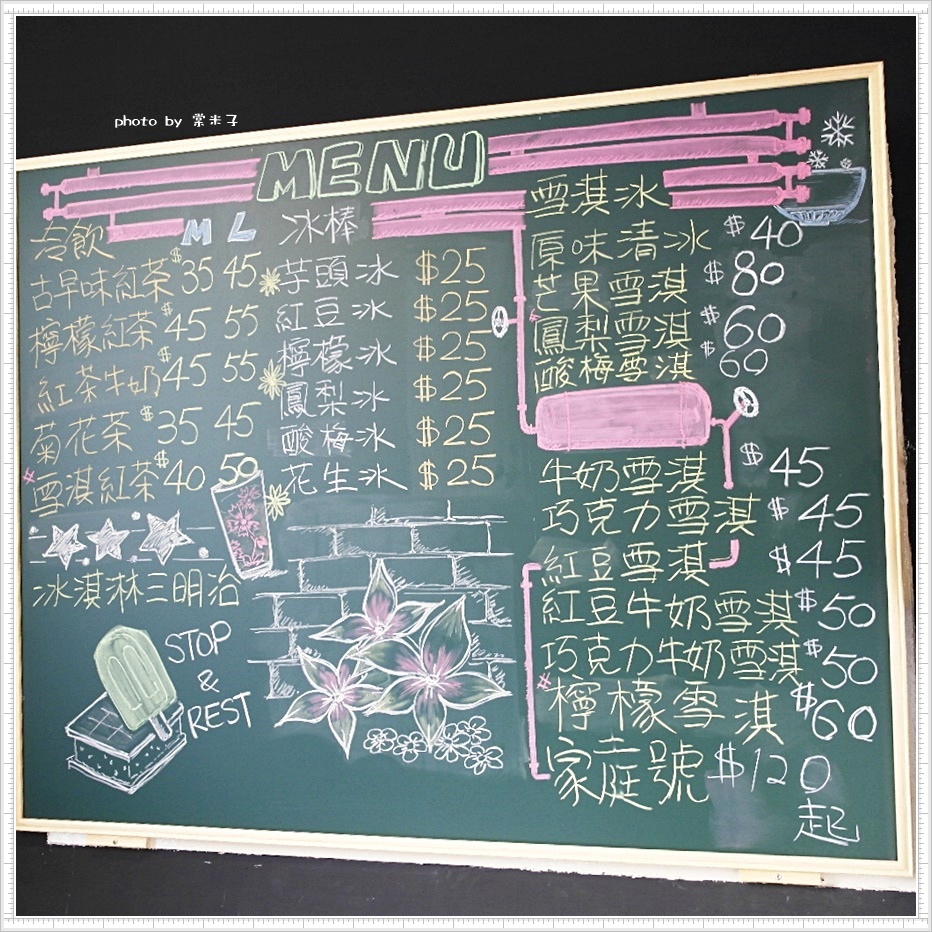 photo by 棠米子
MENU
冷飲 M L
古早味紅茶 $35 45
檸檬紅茶 $45 55
紅茶牛奶 $45 55
菊花茶 $35 45
雪淇紅茶 $40 50
冰淇淋三明治
STOP
&
REST
冰棒
芋頭冰 $25
紅豆冰 $25
檸檬冰 $25
鳳梨冰 $25
酸梅冰 $25
花生冰 $25
雪淇冰
原味清冰 $40
芒果雪淇 $80
鳳梨雪淇 $60
酸梅雪淇 $60
牛奶雪淇 $45
巧克力雪淇 $45
紅豆雪淇 $45
紅豆牛奶雪淇 $50
巧克力牛奶雪淇 $50
檸檬雪淇 $60
家庭號 $120
起